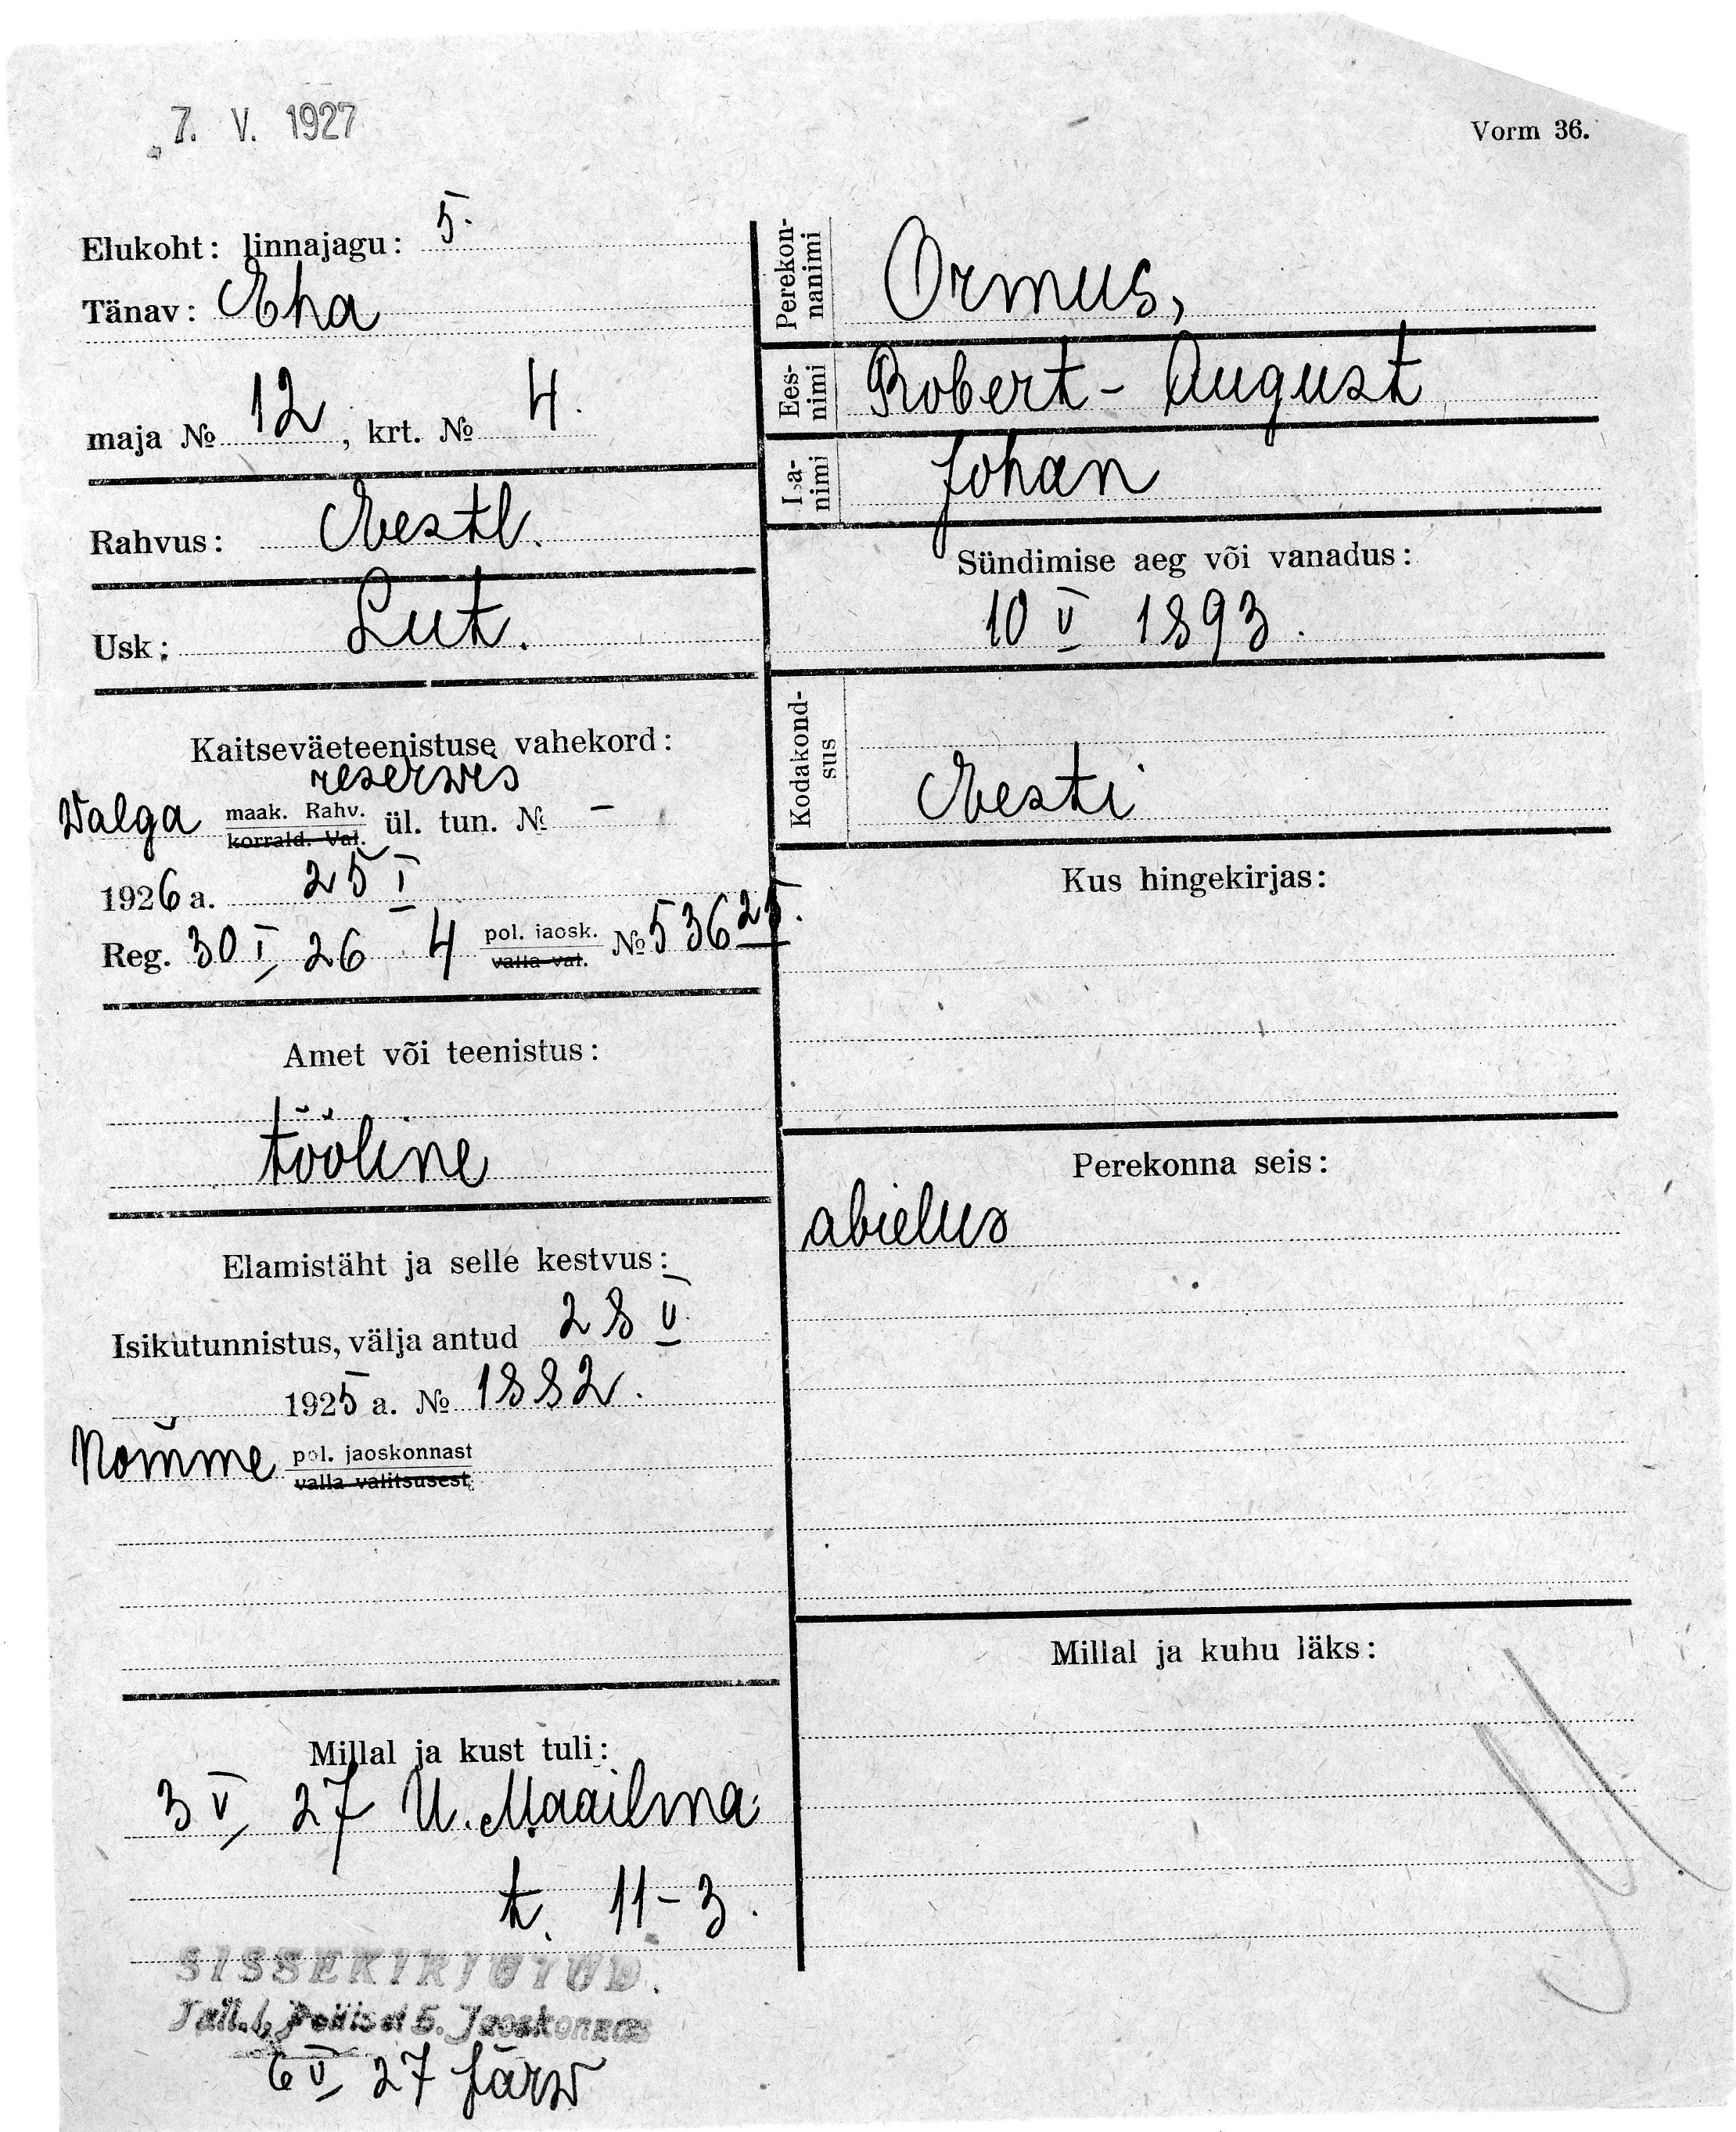 7. V. 1927
Vorm 36.
Elukoht: linnajagu: 5.
Tänav: Eha
maja № 12, krt. № 4.
Rahvus: Eestl.
Usk: Lut.
Kaitseväeteenistuse vahekord:
reservis
Walga maak. Rahv. ül. tun. № –
korrald. Val.
1926 a. 25 I
Reg. 30 I 26 4 pol. jaosk. № 536 25.
valla val.
Amet või teenistus:
tööline
Elamistäht ja selle kestvus:
Isikutunnistus, välja antud 28 V
1925 a. № 1882.
Nõmme pol. jaoskonnast
valla valitsusest
Millal ja kust tuli:
3 V 27 U. Maailma
t. 11-3.
SISSEKIRJUTUD.
Tall. Polisei 5. Jaoskonnas
6 V 27 Järw
Perekon-
nanimi
Ormus,
Ees-
nimi
Robert-August
Isa-
nimi
Johan
Sündimise aeg või vanadus:
10 V 1893.
Kodakond-
sus
Eesti
Kus hingekirjas:
Perekonna seis:
abielus
Millal ja kuhu läks: